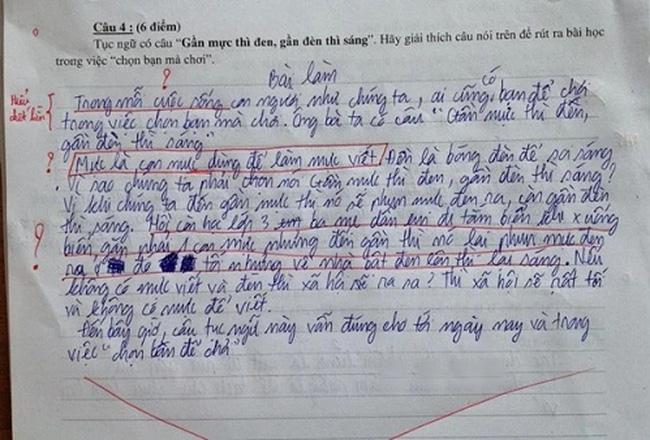 Câu 4 : (6 điểm)
Tục ngữ có câu “Gần mực thì đen, gần đèn thì sáng”. Hãy giải thích câu nói trên để rút ra bài học
trong việc “chọn bạn mà chơi”.
?
Bài làm
Trong mỗi cuộc sống con người như chúng ta, ai cũng có bạn để chơi
trong việc chọn bạn mà chơi. Ông bà ta có câu “Gần mực thì đen,
gần đèn thì sáng”
? Mực là con mực dùng để làm mực viết. Đèn là bóng đèn để ra sáng.
Vì sao chúng ta phải chọn nói Gần mực thì đen, gần đèn thì sáng?
Vì khi chúng ta đến gần mực thì nó sẽ phun mực đen ra, còn gần đèn
thì sáng. Hồi còn học lớp 3 ba mẹ dẫn em đi tắm biển khi x uống
biển gặp phải 1 con mực nhưng đến gần thì nó lại phun mực đen
? ra tối nhưng về nhà bật đèn lên thì lại sáng. Nếu
không có mực viết và đèn thì xã hội sẽ ra sa? Thì xã hội sẽ rất tối
và không có mực để viết.
Đến bây giờ, câu tục ngữ này vẫn đúng cho tới ngày nay và trong
việc “chọn bạn để chơi”